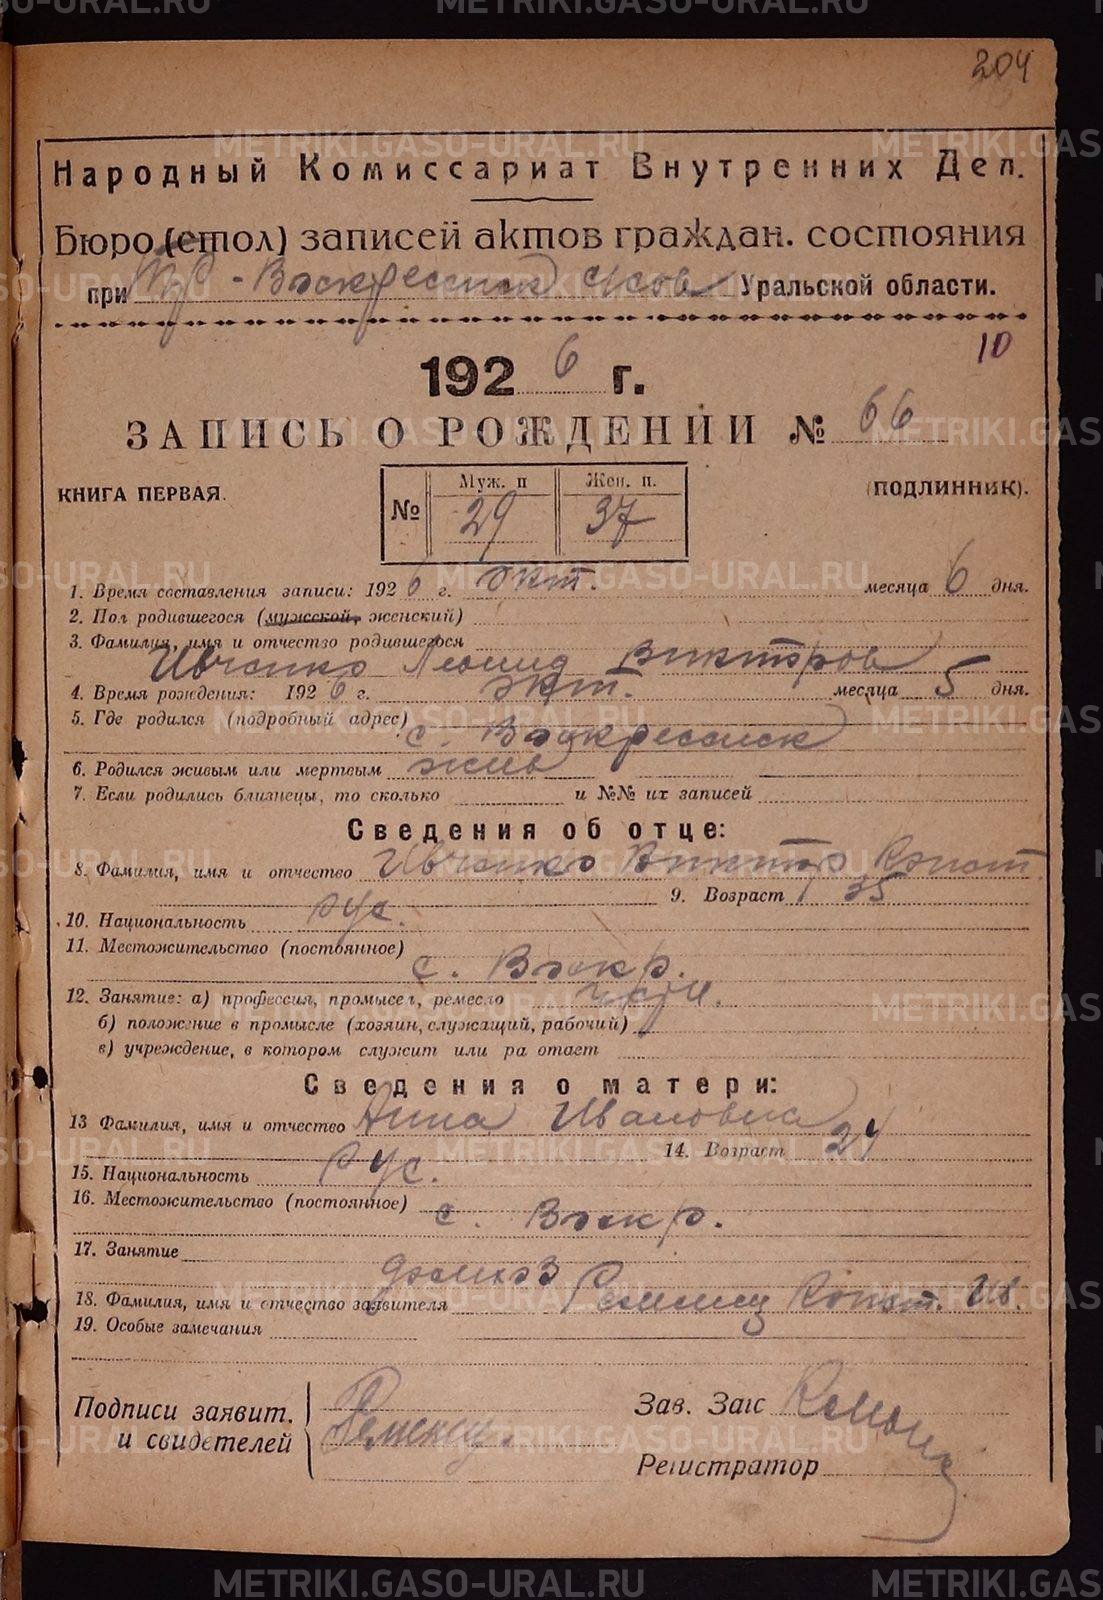 204
Народный Комиссариат Внутренних Дел.
Бюро (стол) записей актов граждан. состояния
при Тр - Воскресенск Исов Уральской области.
10
1926 г.
ЗАПИСЬ О РОЖДЕНИИ № 66
КНИГА ПЕРВАЯ. № Муж. п 29 Жен. п. 37 (ПОДЛИННИК).
1. Время составления записи: 1926 г. окт. месяца 6 дня.
2. Пол родившегося (мужской, женский)
3. Фамилия, имя и отчество родившегося
Ивченко Леонид Викторов
4. Время рождения: 1926 г. окт. месяца 5 дня.
5. Где родился (подробный адрес)
с. Воскресенск
6. Родился живым или мертвым жив
7. Если родились близнецы, то сколько и №№ их записей
Сведения об отце:
8. Фамилия, имя и отчество Ивченко Виктор Конст.
9. Возраст 35
10. Национальность рус.
11. Местожительство (постоянное)
с. Воскр.
12. Занятие: а) профессия, промысел, ремесло
б) положение в промысле (хозяин, служащий, рабочий)
в) учреждение, в котором служит или ра отает
Сведения о матери:
13 Фамилия, имя и отчество Анна Ивановна
14. Возраст 24
15. Национальность рус.
16. Местожительство (постоянное)
с. Воскр.
17. Занятие
домхоз
18. Фамилия, имя и отчество заявителя Конст. Ив.
19. Особые замечания
Подписи заявит.
и свидетелей
Зав. Загс
Регистратор
METRIKI.GASO-URAL.RU